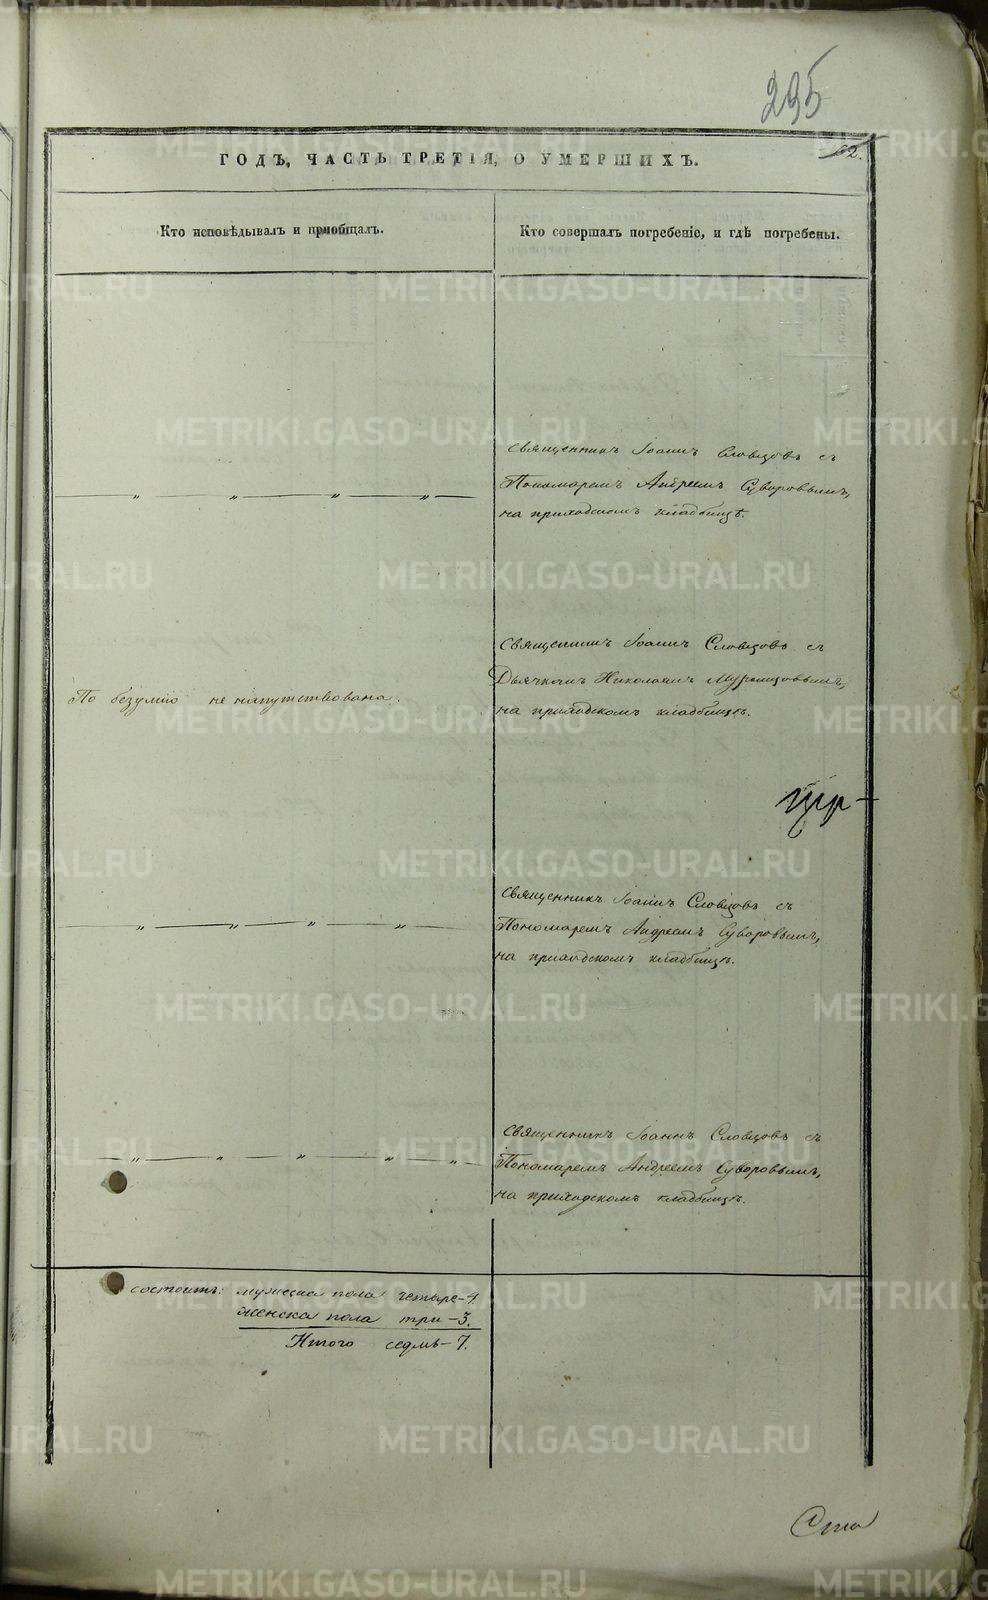 295
ГОДЪ, ЧАСТЬ ТРЕТІЯ, О УМЕРШИХЪ.
62.
Кто исповѣдывалъ и пріобщалъ.
Кто совершалъ погребеніе, и гдѣ погребены.
Священникъ Іоаннъ Словцовъ съ
Пономаремъ Андреемъ Суворовымъ,
на приходскомъ кладбищѣ.
По безумію не напутствована.
Священникъ Іоаннъ Словцовъ съ
Дьячкомъ Николаемъ
на приходскомъ кладбищѣ.
Священникъ Іоаннъ Словцовъ съ
Пономаремъ Андреемъ Суворовымъ,
на приходскомъ кладбищѣ.
Священникъ Іоаннъ Словцовъ съ
Пономаремъ Андреемъ Суворовымъ,
на приходскомъ кладбищѣ.
состоитъ: мужеска пола четыре-4.
женска пола три-3.
Итого седмь-7.
METRIKI.GASO-URAL.RU